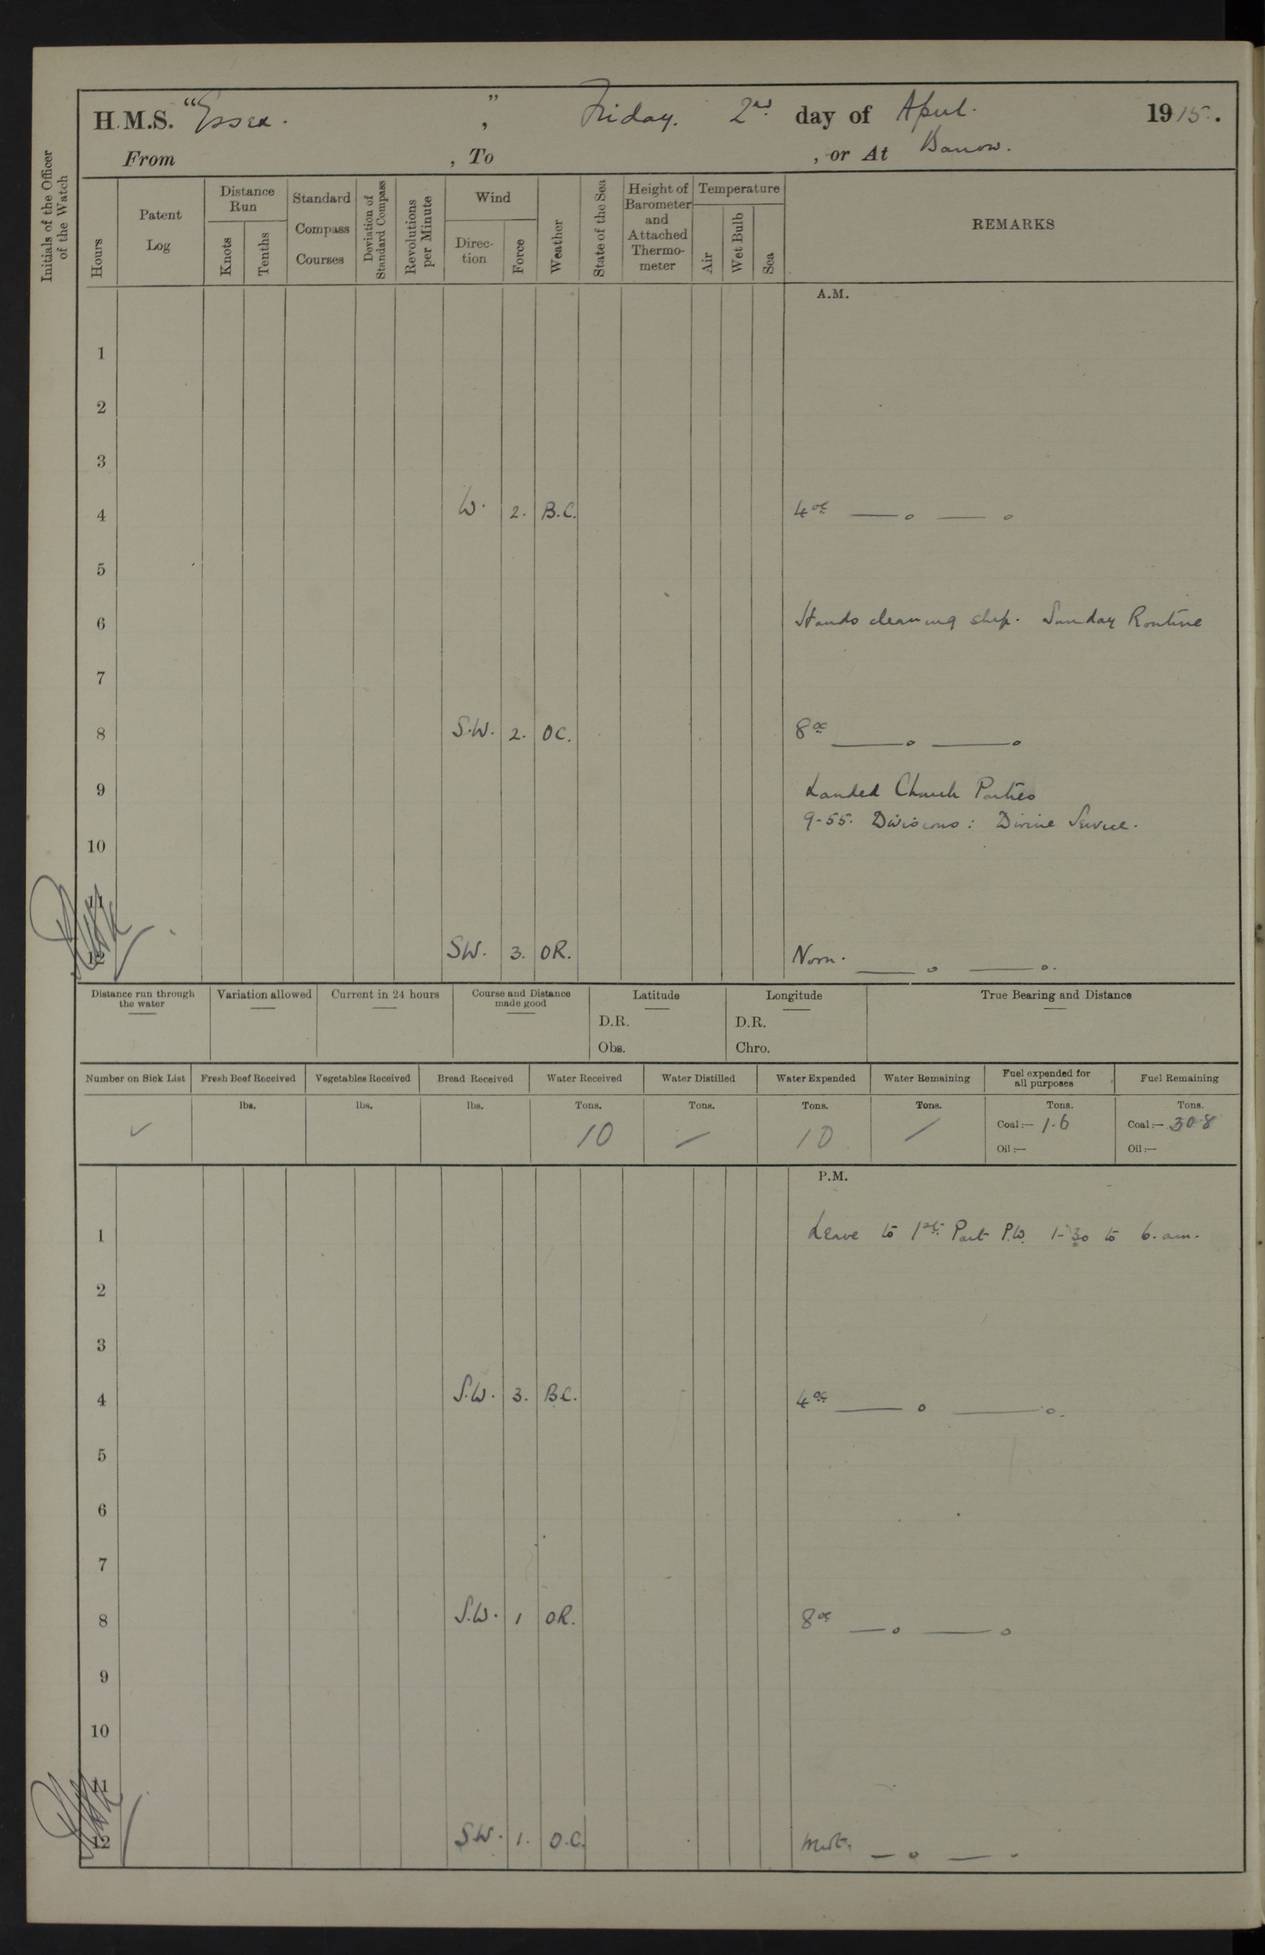 H.M.S. "Essex. ", Friday. 2nd day of April. 1915.
From , To , or At Barrow.
Initials of the Officer of the Watch
Hours
Patent Log
Distance Run
Knots
Tenths
Standard Compass Courses
Deviation of Standard Compass
Revolutions per Minute
Wind
Direc-tion
Force
Weather
State of the Sea
Height of Barometer and Attached Thermo-meter
Temperature
Air
Wet Bulb
Sea
REMARKS
A.M.
1
2
3
4 W. 2. B.C. 4oc —— o —— o
5
6 Hands cleaning ship. Sunday Routine
7
8 S.W. 2. OC. 8oc —— o —— o
9 Landed Church Parties
9-55. Divisions: Divine Service.
10
12 SW. 3. OR. Noon. —— o —— o.
Distance run through the water
Variation allowed
Current in 24 hours
Course and Distance made good
Latitude
D.R.
Obs.
Longitude
D.R.
Chro.
True Bearing and Distance
Number on Sick List
Fresh Beef Received
Vegetables Received
Bread Received
Water Received
Water Distilled
Water Expended
Water Remaining
Fuel expended for all purposes
Fuel Remaining
lbs. lbs. lbs. Tons. Tons. Tons. Tons. Tons. Tons.
✓ 10 — 10 — Coal:— 1.6 Coal:— 308
Oil:— Oil:—
P.M.
1 Leave to 1st Part P.W. 1-30 to 6. am.
2
3
4 S.W. 3. B.C. 4oc —— o —— o.
5
6
7
8 S.W. 1 OR. 8oc —— o —— o
9
10
11
12 SW. 1. O.C. Mdt. — o — -